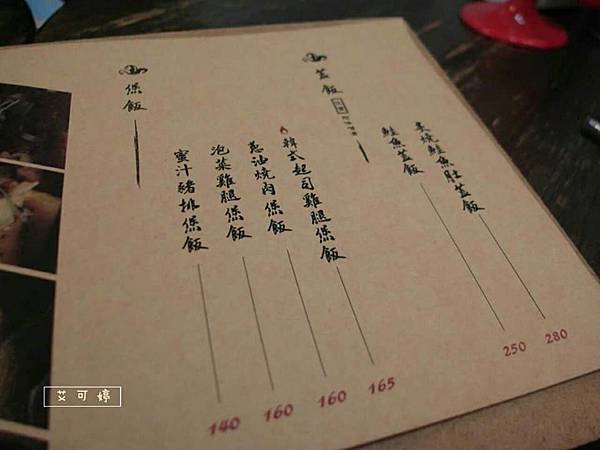 蓋飯
炙燒鮭魚肚蓋飯 280
鮭魚蓋飯 250
煲飯
韓式起司雞腿煲飯 165
蔥油燒肉煲飯 160
泡菜雞腿煲飯 160
蜜汁豬排煲飯 140
艾可婷